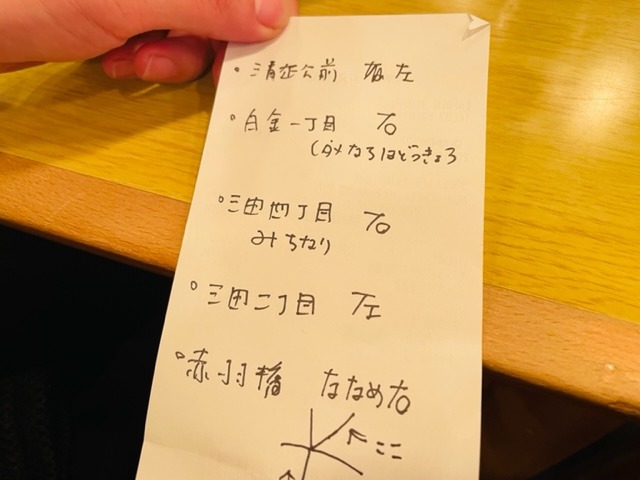 ・清正公前 左
・白金一丁目 右
(ダメならはどうきょろ
・三田四丁目 右
みちなり
・三田二丁目 左
・赤羽橋 ななめ右
ここ